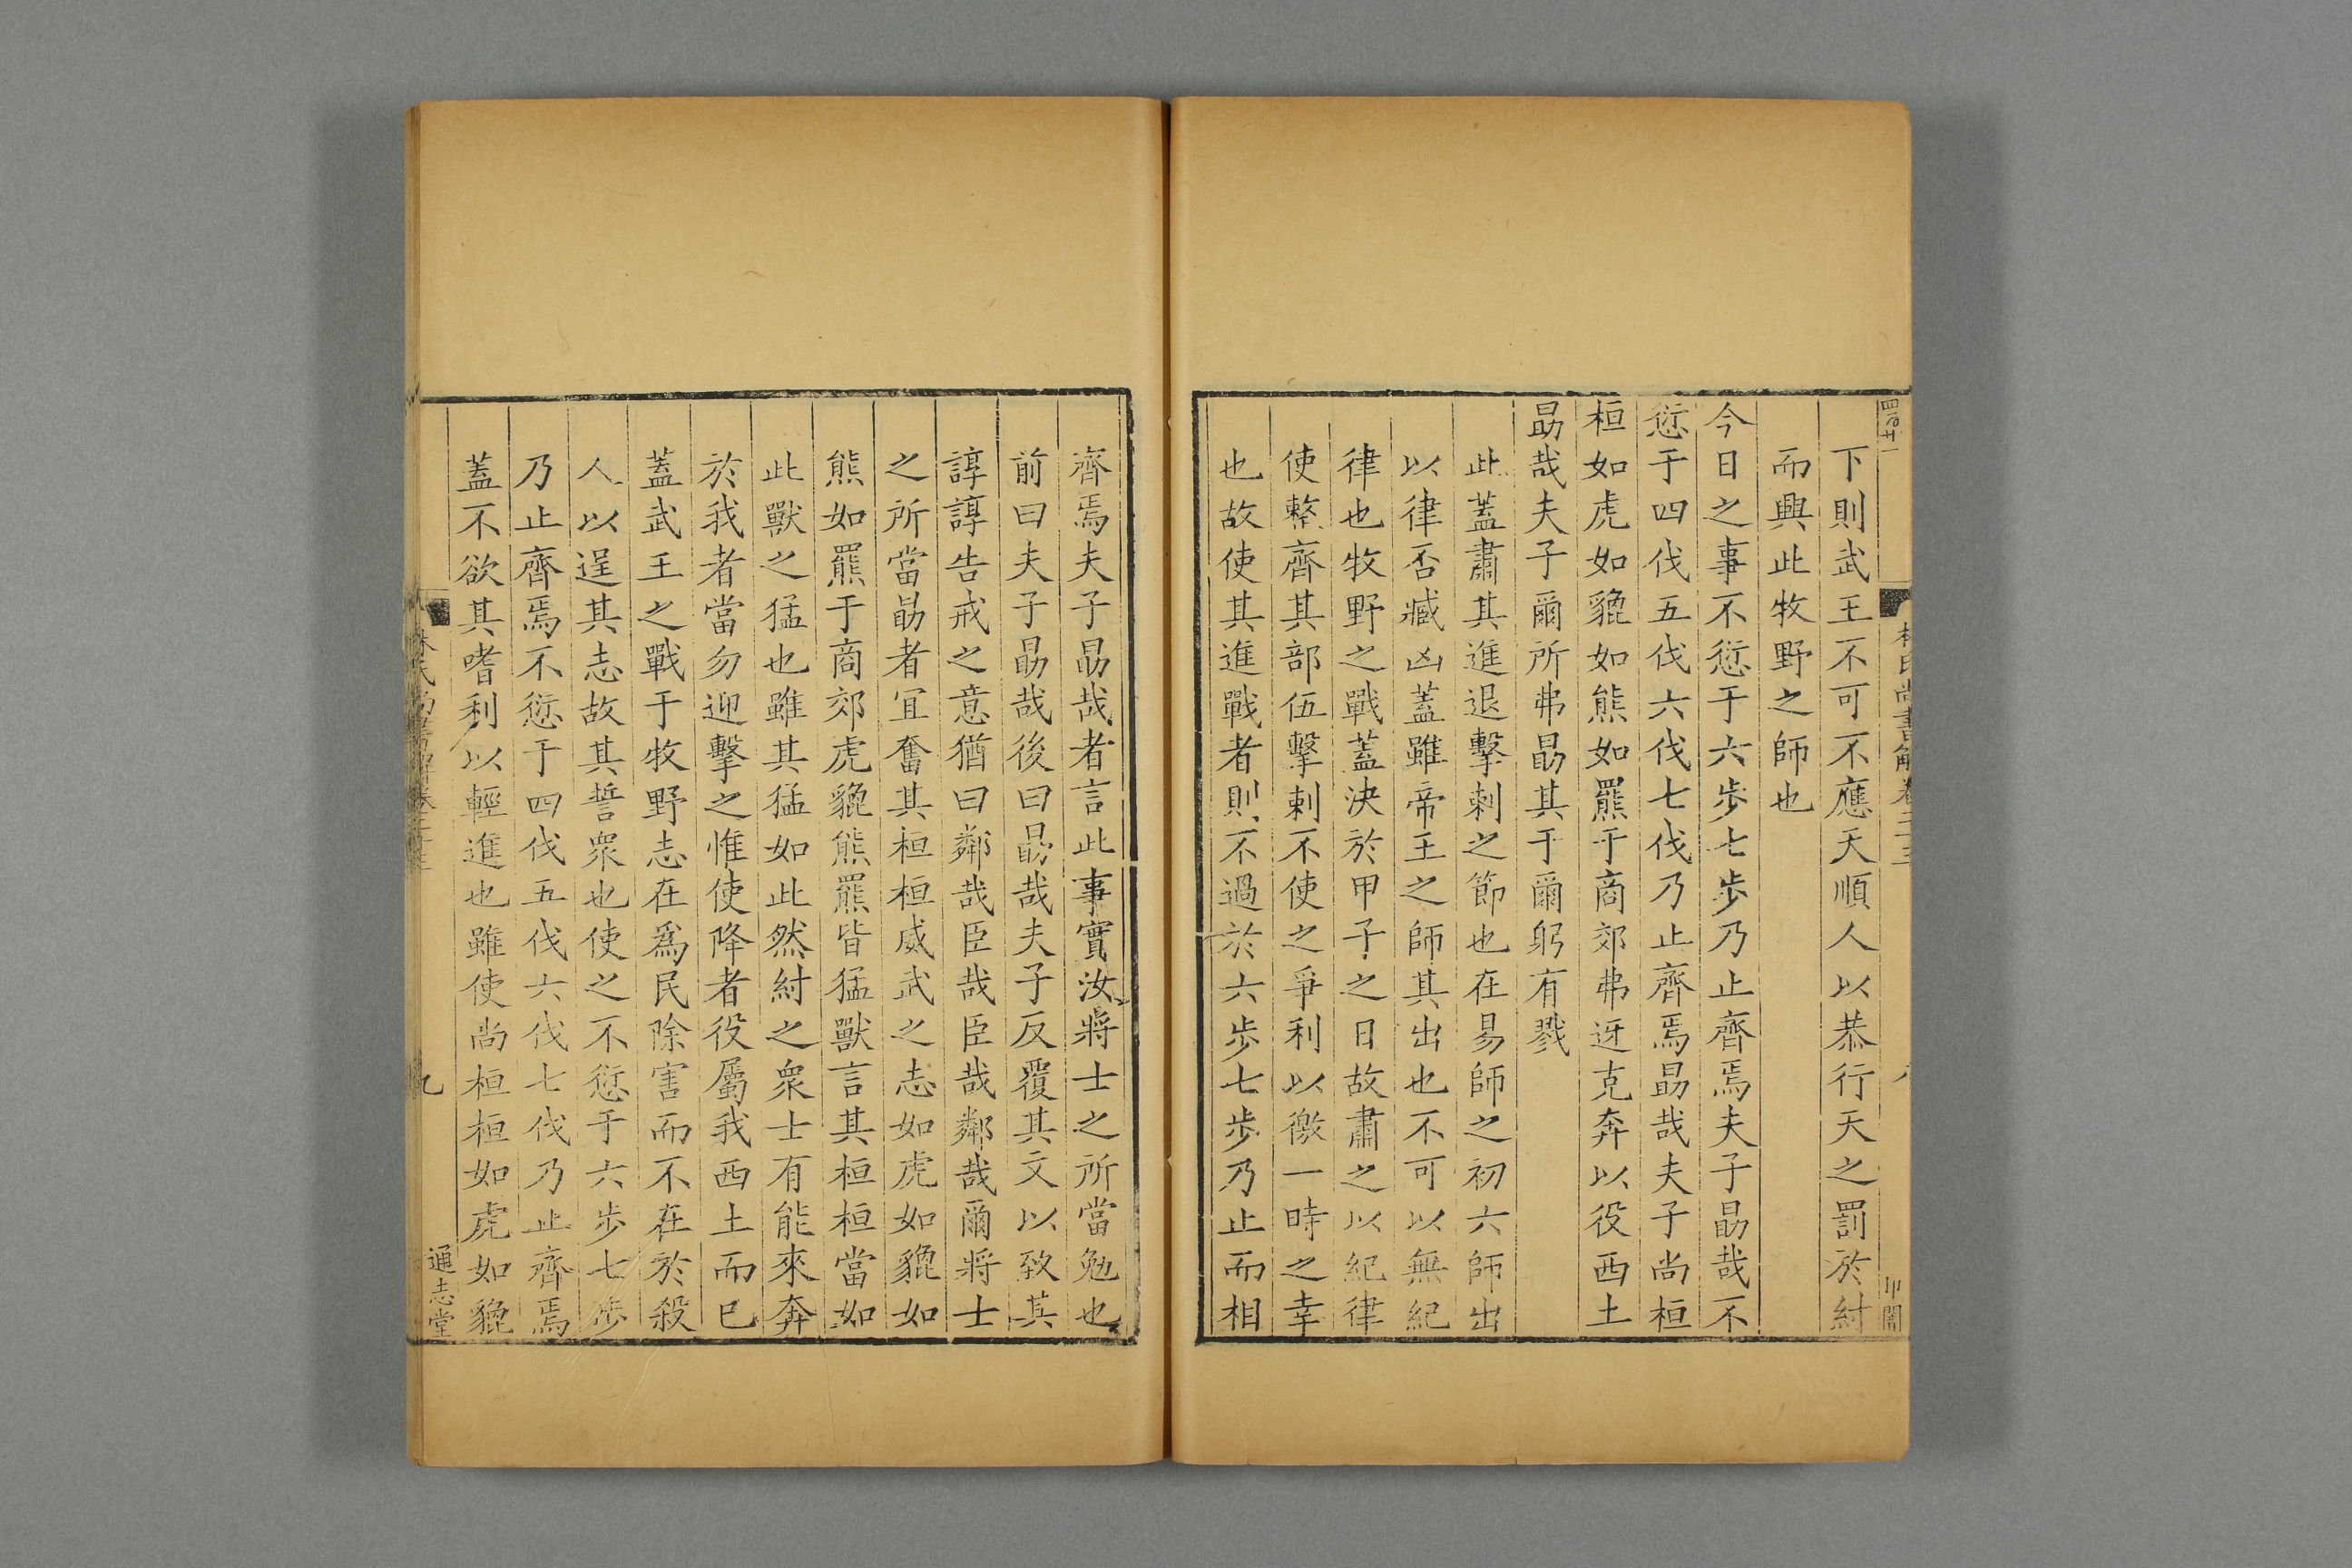 下則武王不可不應天順人以恭行天之罰於紂
而興此牧野之師也
今日之事不愆于六歩七歩乃止齊焉夫子勗哉不
愆于四伐五伐六伐七伐乃止齊焉勗哉夫子尚桓
桓如虎如貔如熊如羆于商郊弗迓克奔以役西土
勗哉夫子爾所弗勗其于爾躬有戮
此蓋肅其進退擊刺之節也在易師之初六師出
以律否臧凶蓋雖帝王之師其出也不可以無紀
律也牧野之戰蓋決於甲子之日故肅之以紀律
使整齊其部伍擊刺不使之爭利以徼一時之幸
也故使其進戰者則不過於六歩七歩乃止而相
齊焉夫子勗哉者言此事實汝將士之所當勉也
前曰夫子勗哉後曰勗哉夫子反覆其文以致其
諄諄告戒之意猶曰鄰哉臣哉臣哉鄰哉爾將士
之所當勗者宜奮其桓桓威武之志如虎如貔如
熊如羆于商郊虎貔熊羆皆猛獸言其桓桓當如
此獸之猛也雖其猛如此然紂之衆士有能來奔
於我者當勿迎擊之惟使降者役屬我西土而已
蓋武王之戰于牧野志在爲民除害而不在於殺
人以逞其志故其誓衆也使之不愆于六歩七歩
乃止齊焉不愆于四伐五伐六伐七伐乃止齊焉
蓋不欲其嗜利以輕進也雖使尚桓桓如虎如貔
九
通志堂